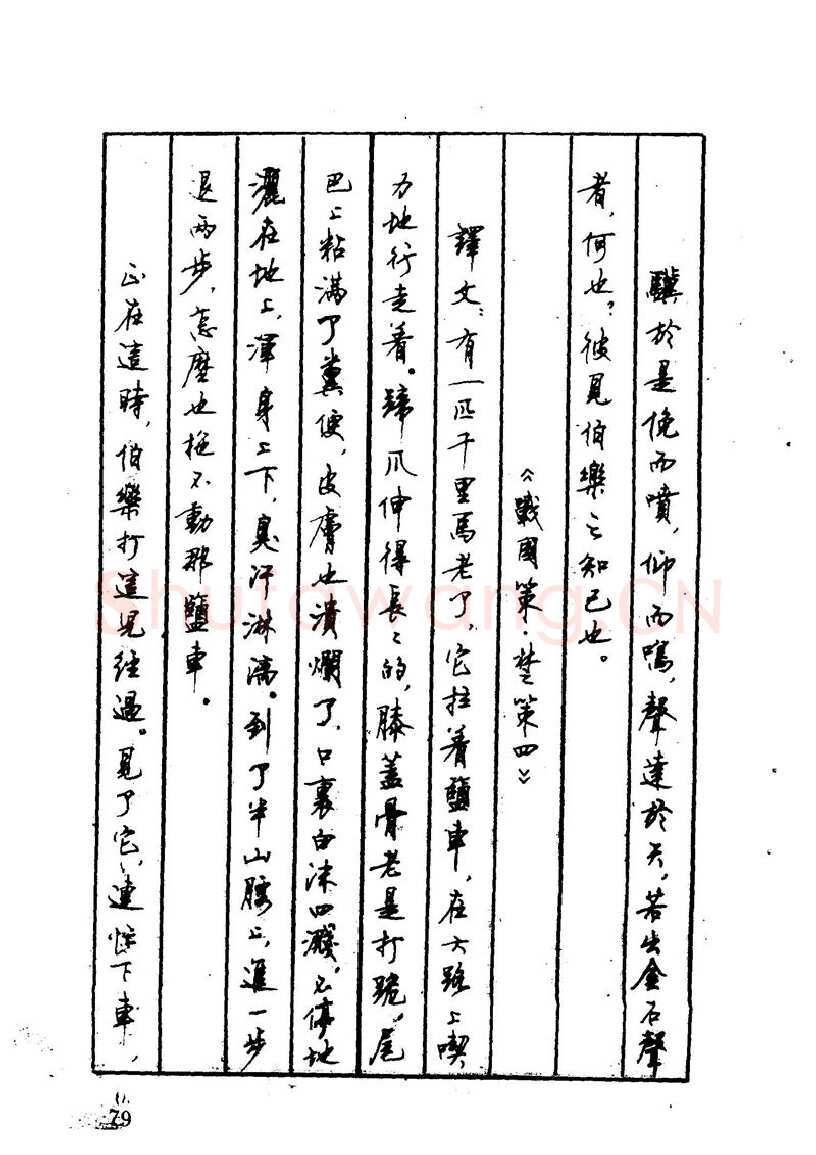 驥於是俛而噴，仰而鳴，聲達於天，若出金石聲
者，何也？彼見伯樂之知己也。
《戰國策·楚策四》
譯文：有一匹千里馬老了，它拉着鹽車，在大路上喫
力地行走着。蹄爪伸得長長的，膝蓋骨老是打跪，尾
巴上粘滿了糞便，皮膚也潰爛了，口裏白沫四濺，不停地
灑在地上，渾身上下，臭汗淋漓。到了半山腰上，進一步
退兩步，怎麼也拖不動那鹽車。
正在這時，伯樂打這兒經過。見了它，連忙下車，
79
Shufawang.CN